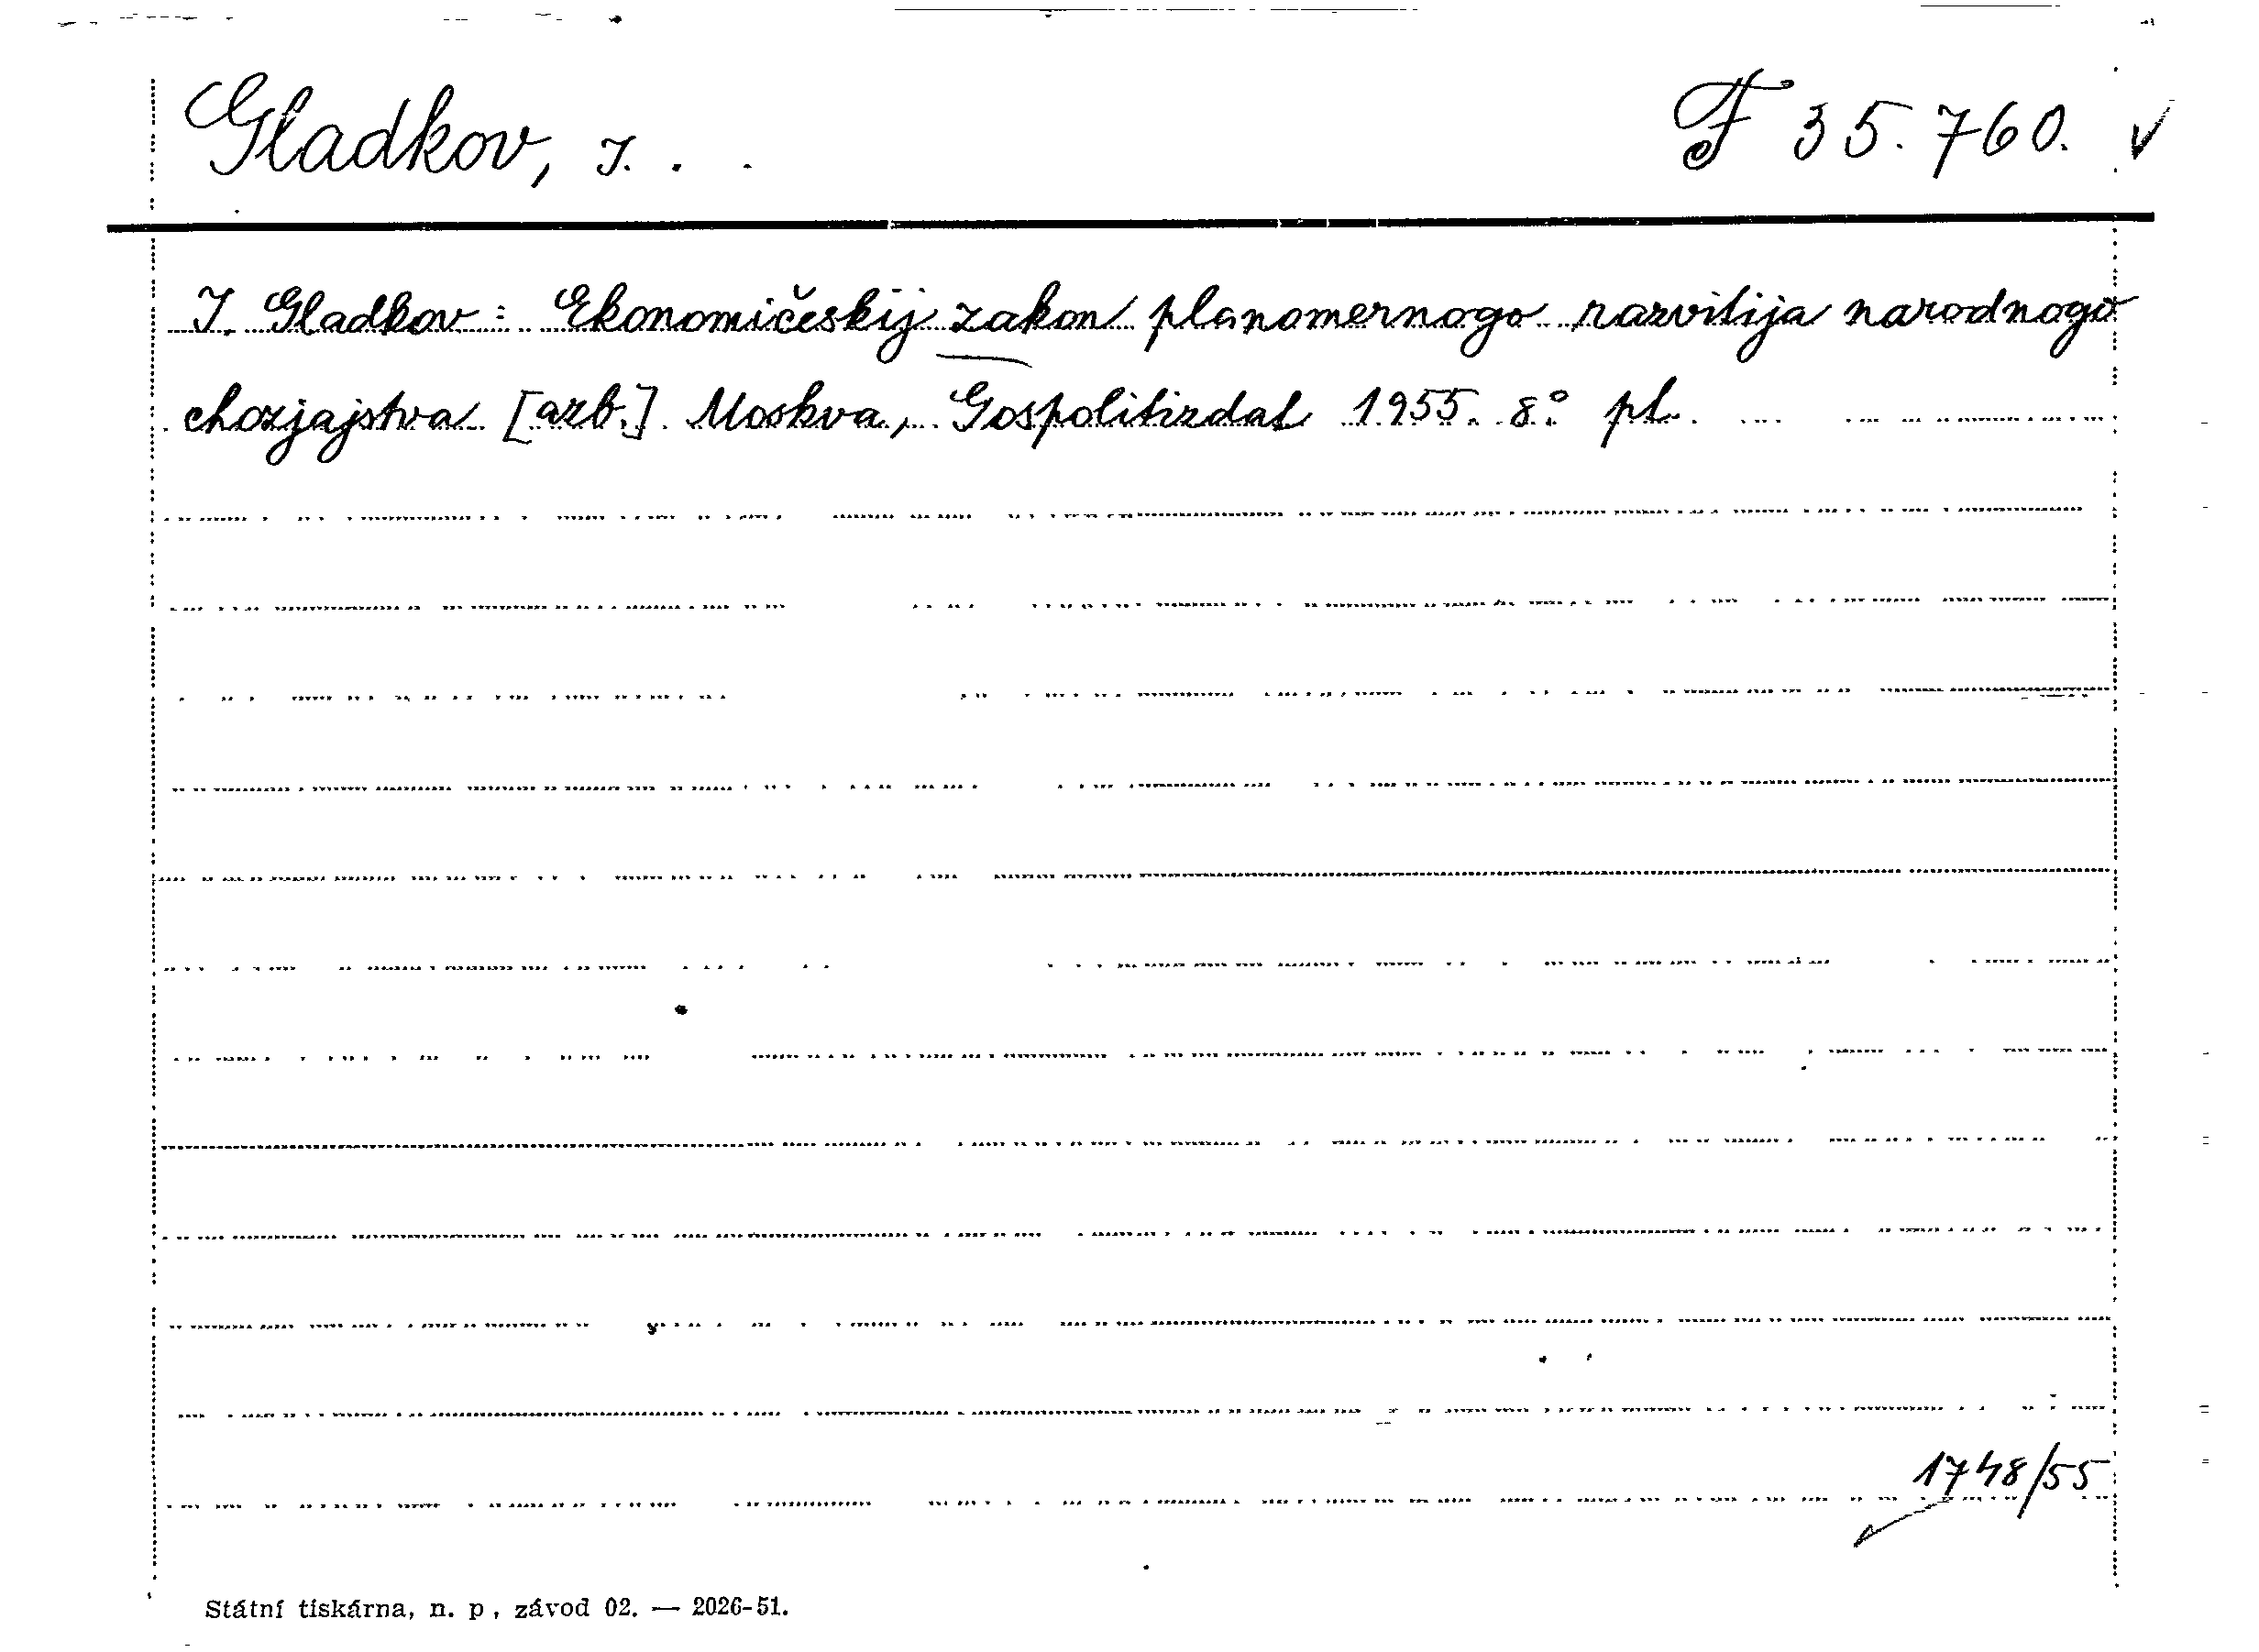 Gladkov, I. F 35.760. ✓
I. Gladkov: Ekonomičeskij zakon planomernogo razvitija narodnogo
chozjajstva [azb.] Moskva, Gospolitizdat 1955. 8° pl.
1748/55
Státní tiskárna, n. p., závod 02. — 2026-51.